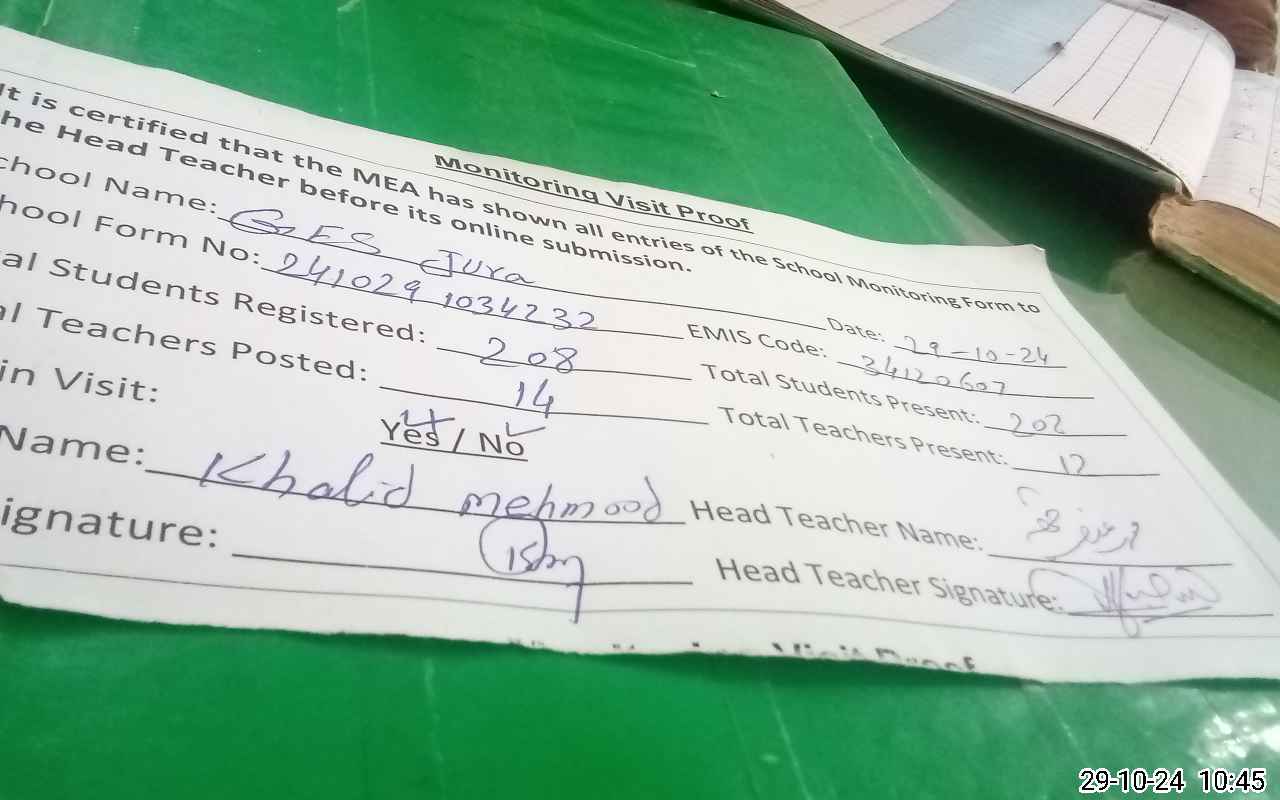 Monitoring Visit Proof
It is certified that the MEA has shown all entries of the School Monitoring Form to
he Head Teacher before its online submission.
chool Name: GES Jura Date: 29-10-24
hool Form No: 241029 1034232 EMIS Code: 34120607
al Students Registered: 208 Total Students Present: 202
al Teachers Posted: 14 Total Teachers Present: 12
in Visit: Yes / No
Name: Khalid mehmood Head Teacher Name:
ignature: Head Teacher Signature:
Visit Proof
29-10-24 10:45